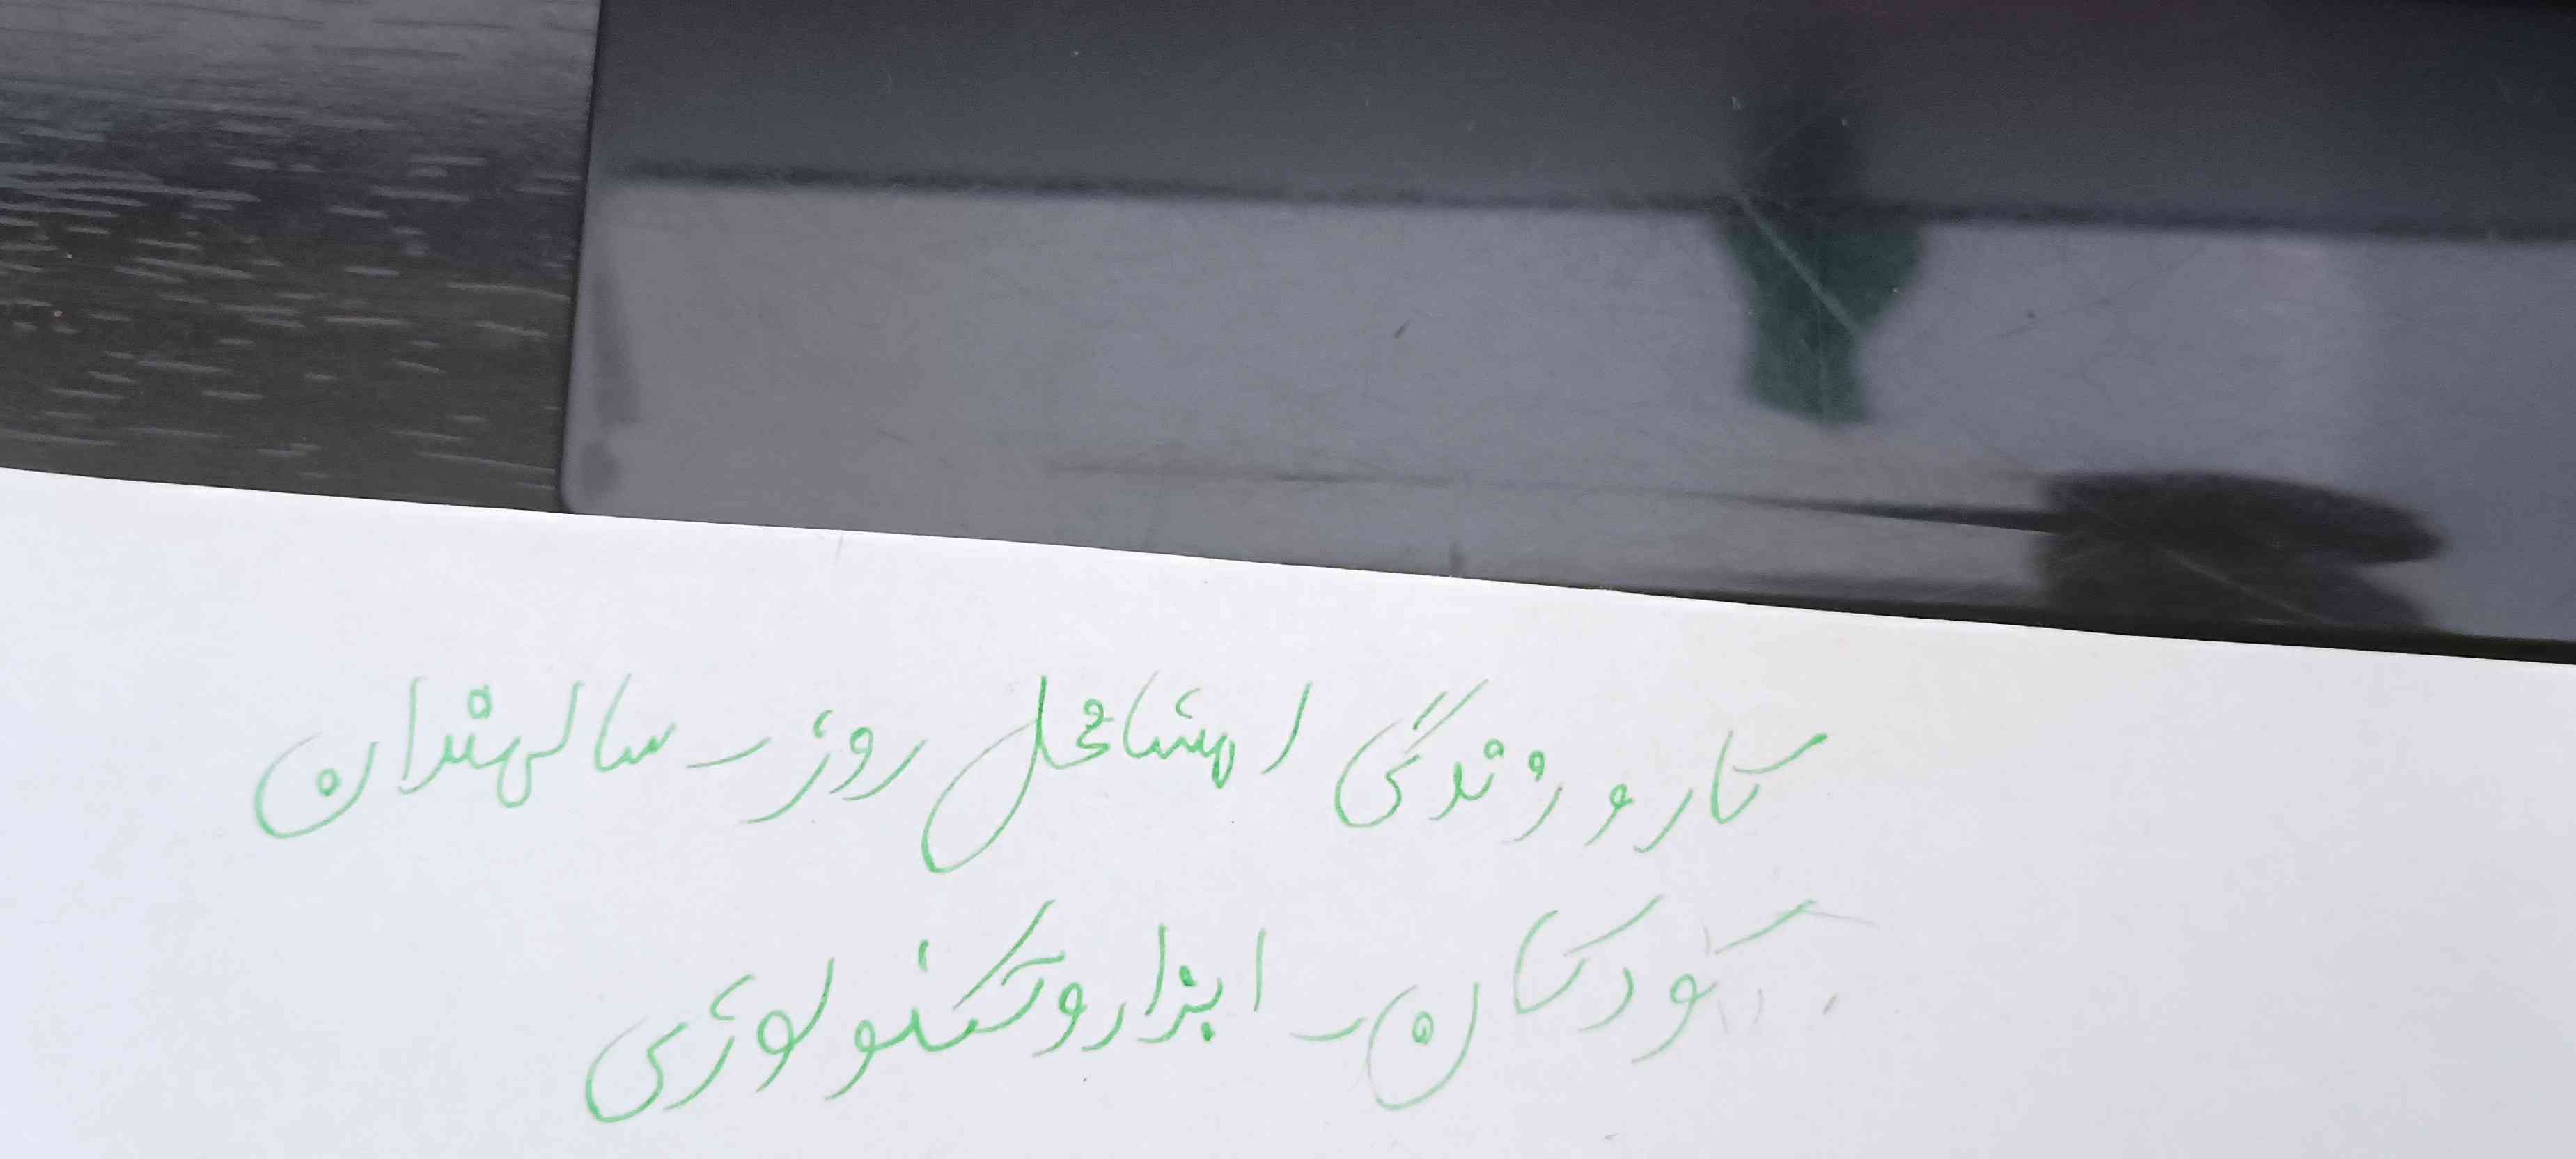 کار و زندگی / مشاغل روز - سالمندان
کودکان - ابزار و تکنولوژی